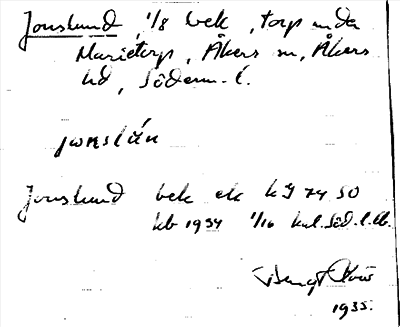 Jonslund, 1/8 bek, torp under
Marietorp, Åkers sn, Åkers
hd, Söderm. l.
Jonslund bek ek kJ 74 50
kb 1934 1/16 kul. Söd. l. kb.
Bengt
1935.